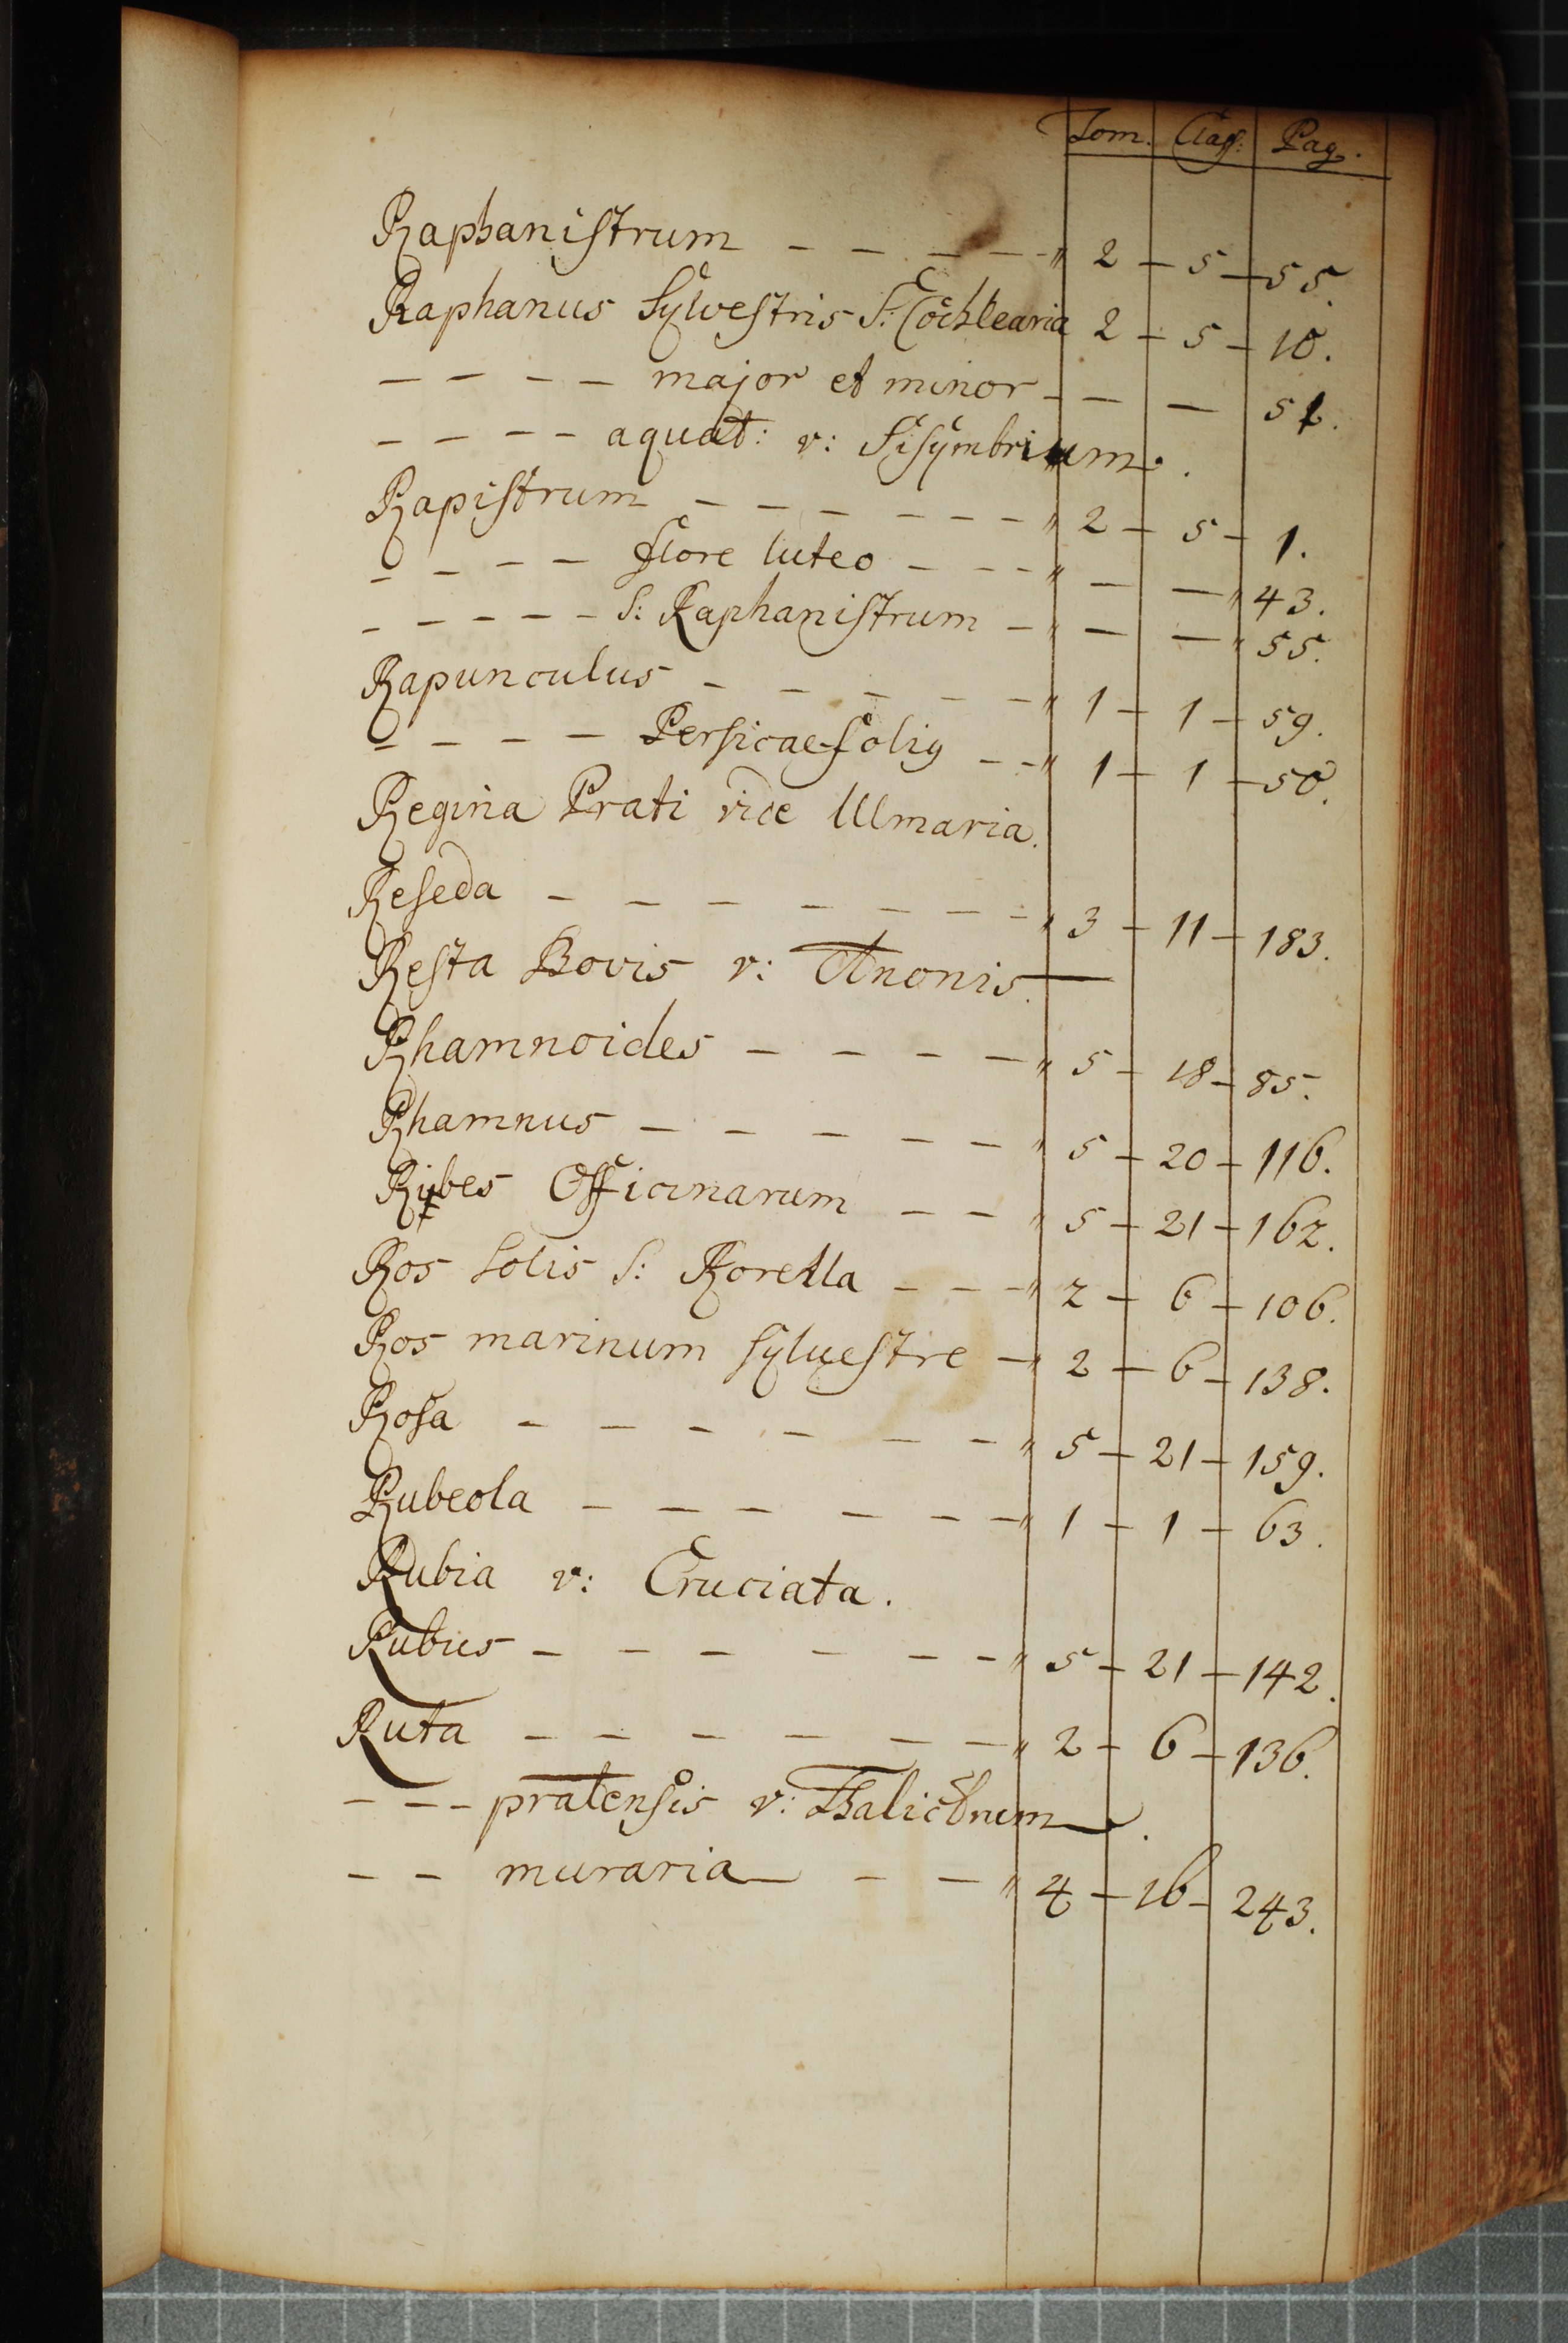 Tom. Claſs: Pag.
Raphaniſtrum - - - - " 2 - 5 - 55.
Raphanus Sylveſtris S: Cochlearia 2 - 5 - 10.
- - - - major et minor - - - 51.
- - - - aquat: v: Siſymbrium.
Rapiſtrum - - - - - - - " 2 - 5 - 1.
- - - - flore luteo - - - - " - - " 43.
- - - - - S: Raphaniſtrum - " - - " 55.
Rapunculus - - - - - " 1 - 1 - 59.
- - - - Perſicaefolig - - " 1 - 1 - 50.
Regina Prati vide Ulmaria.
Reſeda - - - - - - - - " 3 - 11 - 183.
Reſta Bovis v: Anonis.
Rhamnoides - - - - " 5 - 18 - 85.
Rhamnus - - - - - " 5 - 20 - 116.
Ribes Officinarum - - " 5 - 21 - 162.
Ros Solis S: Rorella - - - " 2 - 6 - 106.
Ros marinum ſylueſtre - " 2 - 6 - 138.
Roſa - - - - - - " 5 - 21 - 159.
Rubeola - - - - - - " 1 - 1 - 63.
Rubia v: Cruciata.
Rubus - - - - - - " 5 - 21 - 142.
Ruta - - - - - - " 2 - 6 - 136.
- - - pratenſis v: Thalictrum.
- - muraria - - " 4 - 16 - 243.